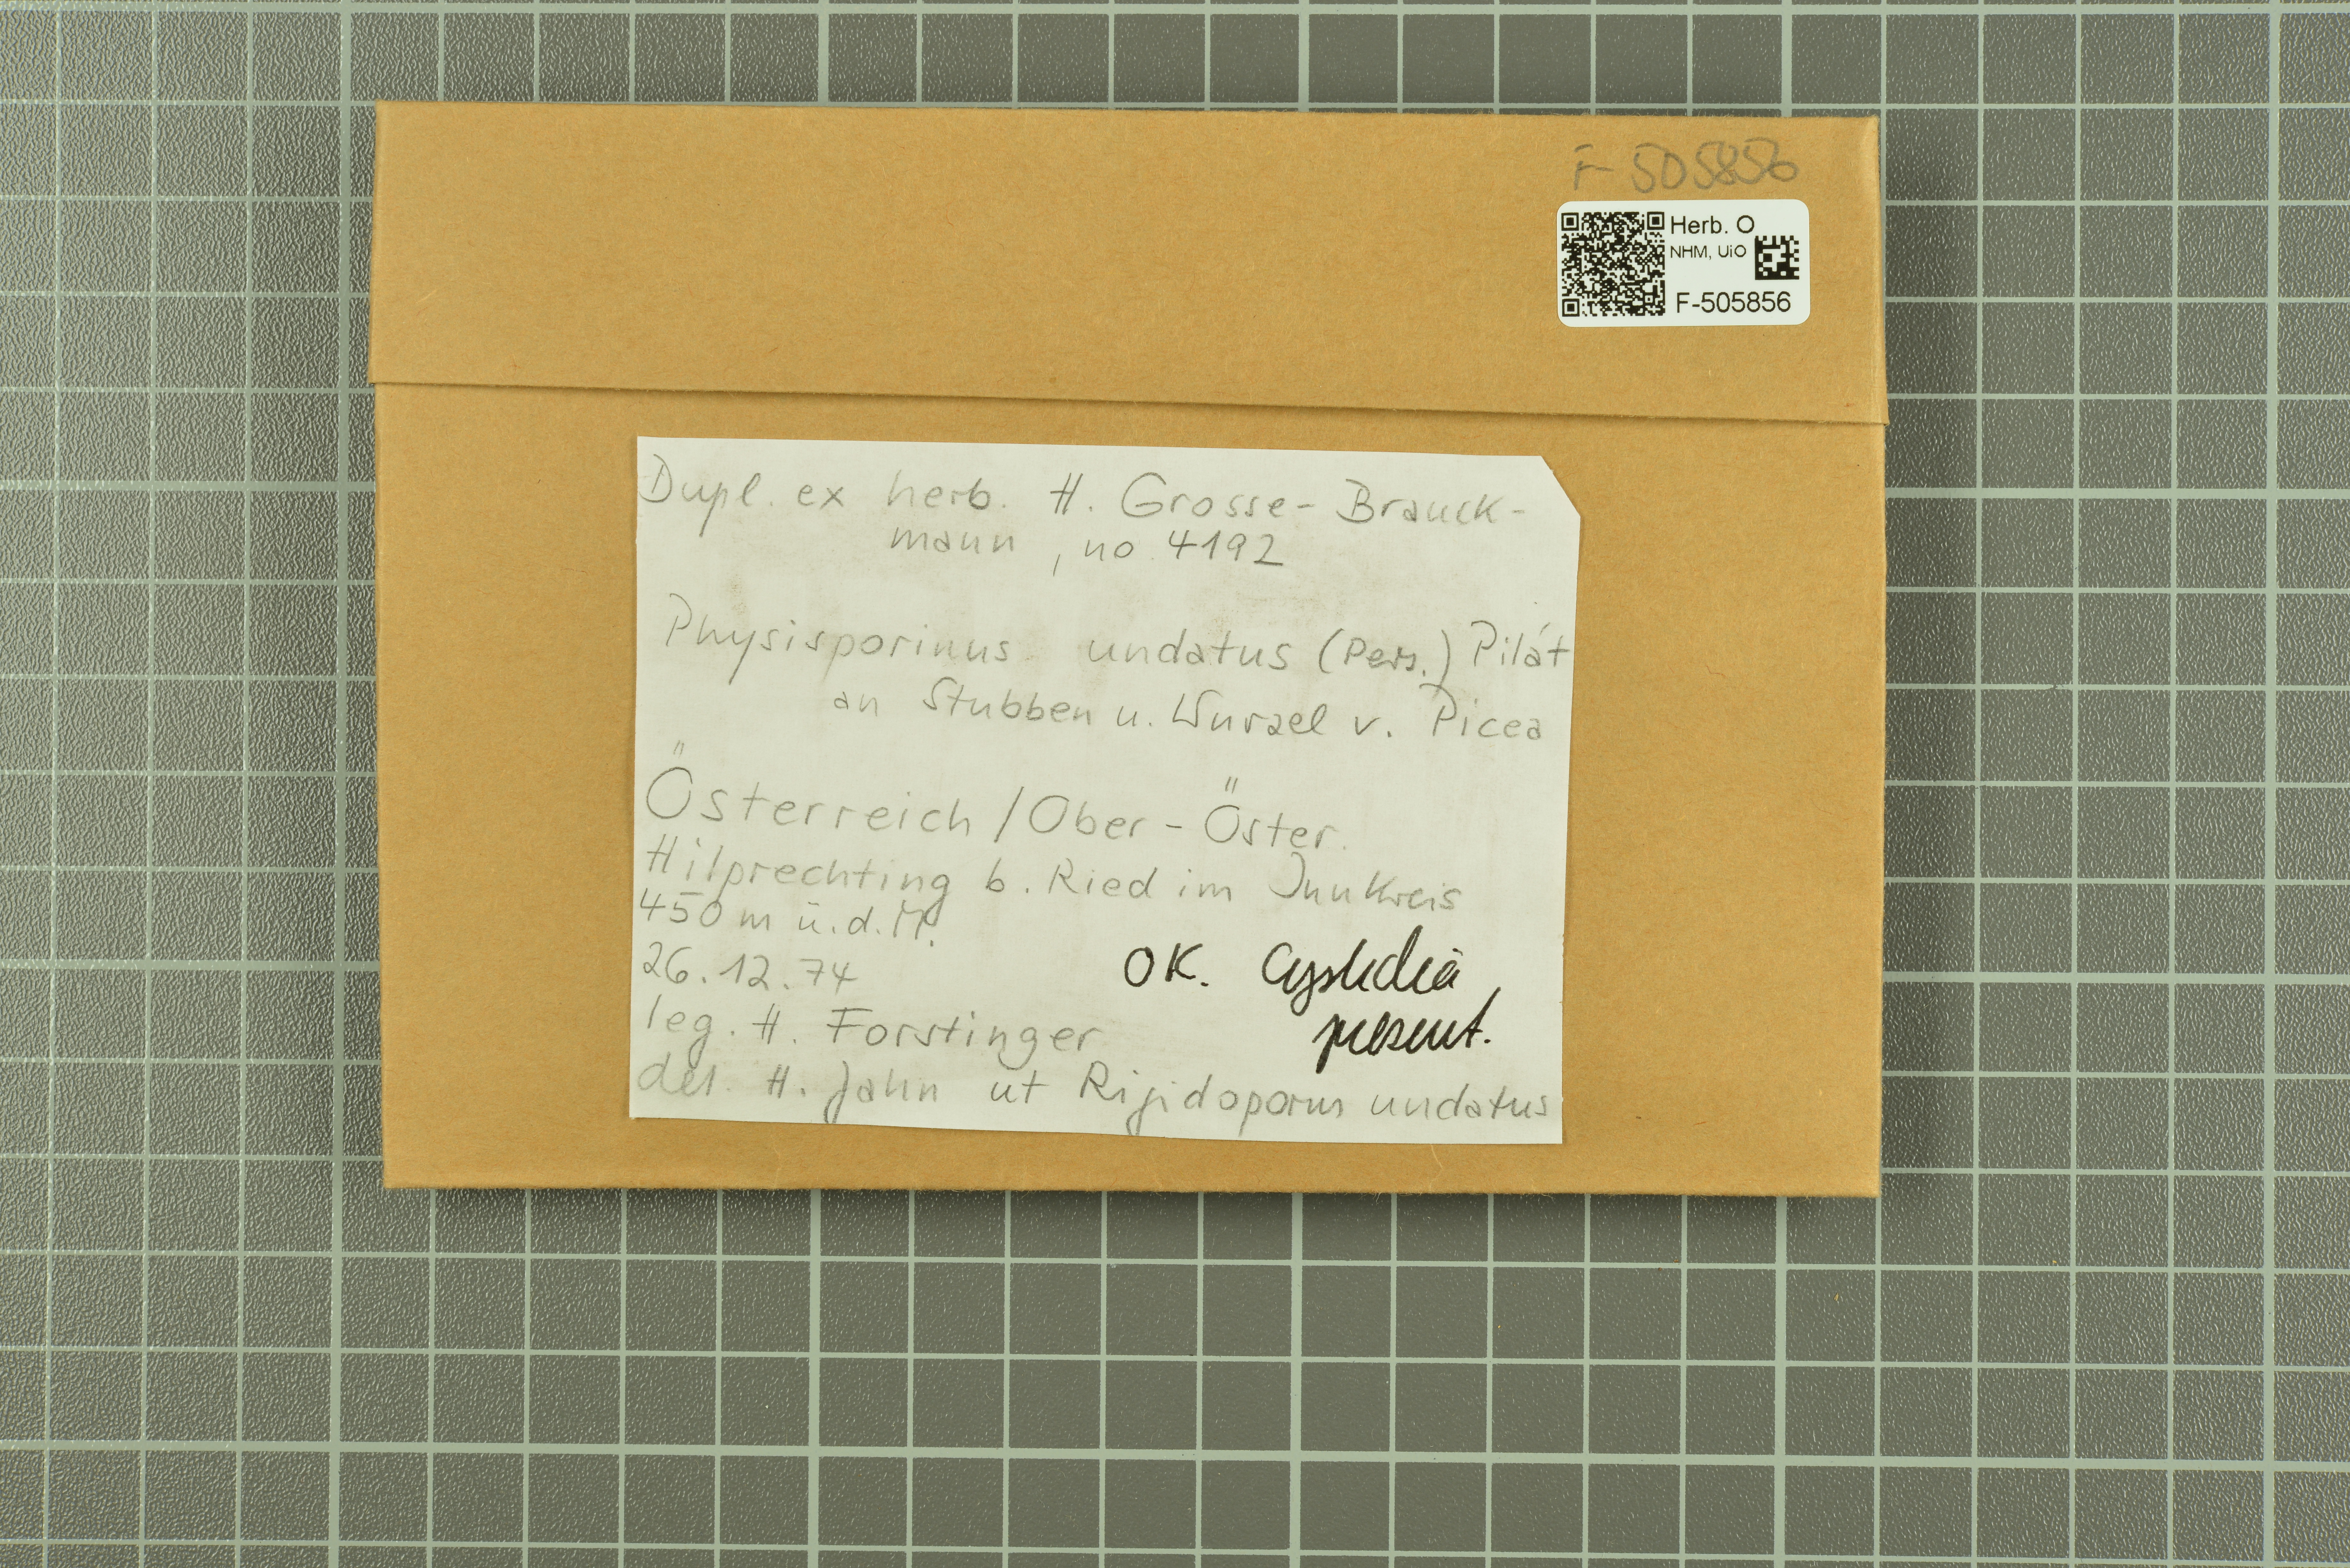 F-505856
Herb. O
NHM, UiO
F-505856
Dupl. ex herb. H. Grosse-Brauck-
mann, no. 4192
Physisporinus undatus (Pers.) Pilát
an Stubben u. Wurzel v. Picea
Österreich / Ober-Öster.
Hilprechting b. Ried im Innkreis
450 m ü.d.M.
26.12.74
OK. Cystidia
present.
leg. H. Forstinger
det. H. Jahn ut Rigidoporus undatus